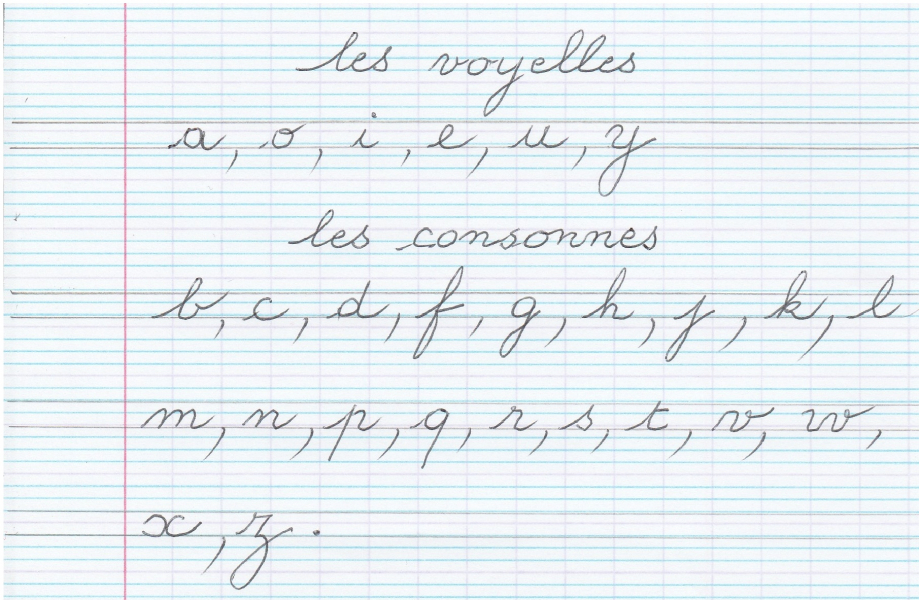 les voyelles
a, o, i, e, u, y
les consonnes
b, c, d, f, g, h, j, k, l
m, n, p, q, r, s, t, v, w,
x, z.